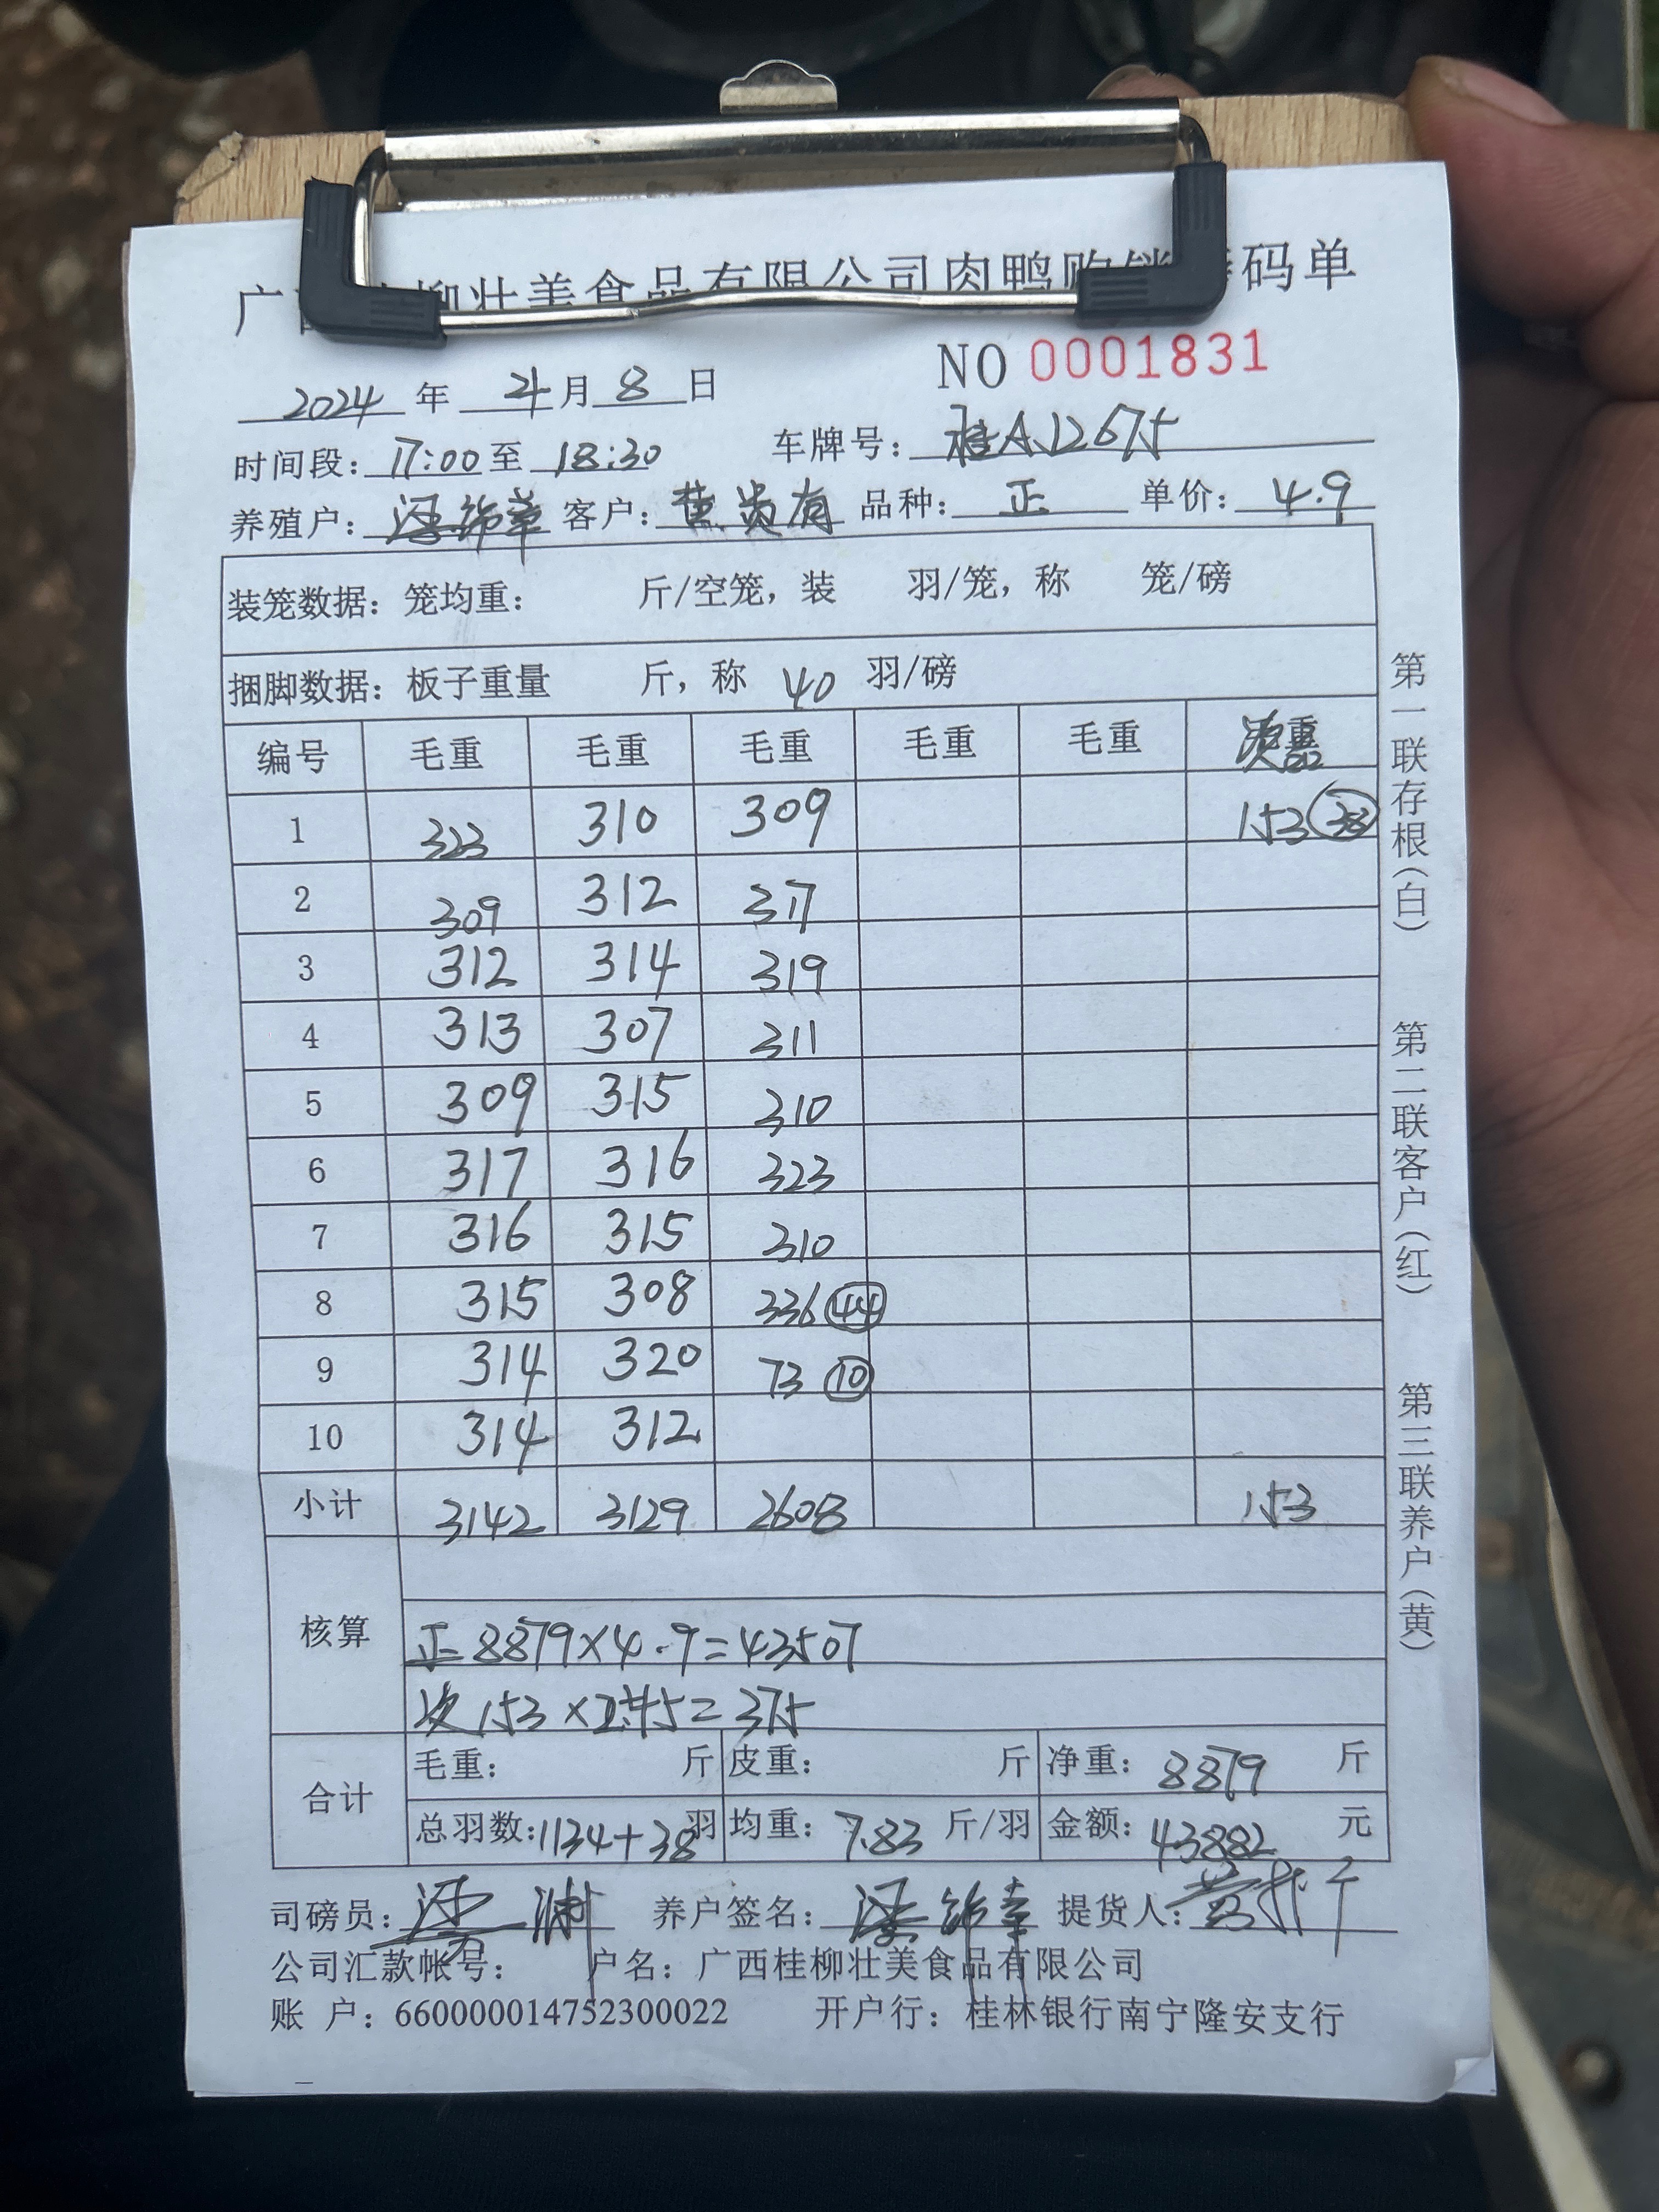 广柳壮美食品有限公司肉鸭购销码单
NO 0001831
2024 年 4 月 8 日
时间段: 17:00 至 18:30 车牌号: 桂AJ2675
养殖户: 客户: 贵有 品种: 正 单价: 4.9
装笼数据: 笼均重: 斤/空笼, 装 羽/笼, 称 笼/磅
捆脚数据: 板子重量 斤, 称 40 羽/磅
编号 毛重 毛重 毛重 毛重 毛重 次品
1 323 310 309 153 38
2 309 312 317
3 312 314 319
4 313 307 311
5 309 315 310
6 317 316 323
7 316 315 310
8 315 308 336 44
9 314 320 73 10
10 314 312
小计 3142 3129 2608 153
核算
正 8879×4.9=43507
次 153×2.45=375
合计 毛重: 斤 皮重: 斤 净重: 8879 斤
总羽数: 1134+38 羽 均重: 7.83 斤/羽 金额: 43882 元
司磅员: 养户签名: 提货人:
公司汇款帐号: 户名: 广西桂柳壮美食品有限公司
账 户: 660000014752300022 开户行: 桂林银行南宁隆安支行
第一联存根(白) 第二联客户(红) 第三联养户(黄)